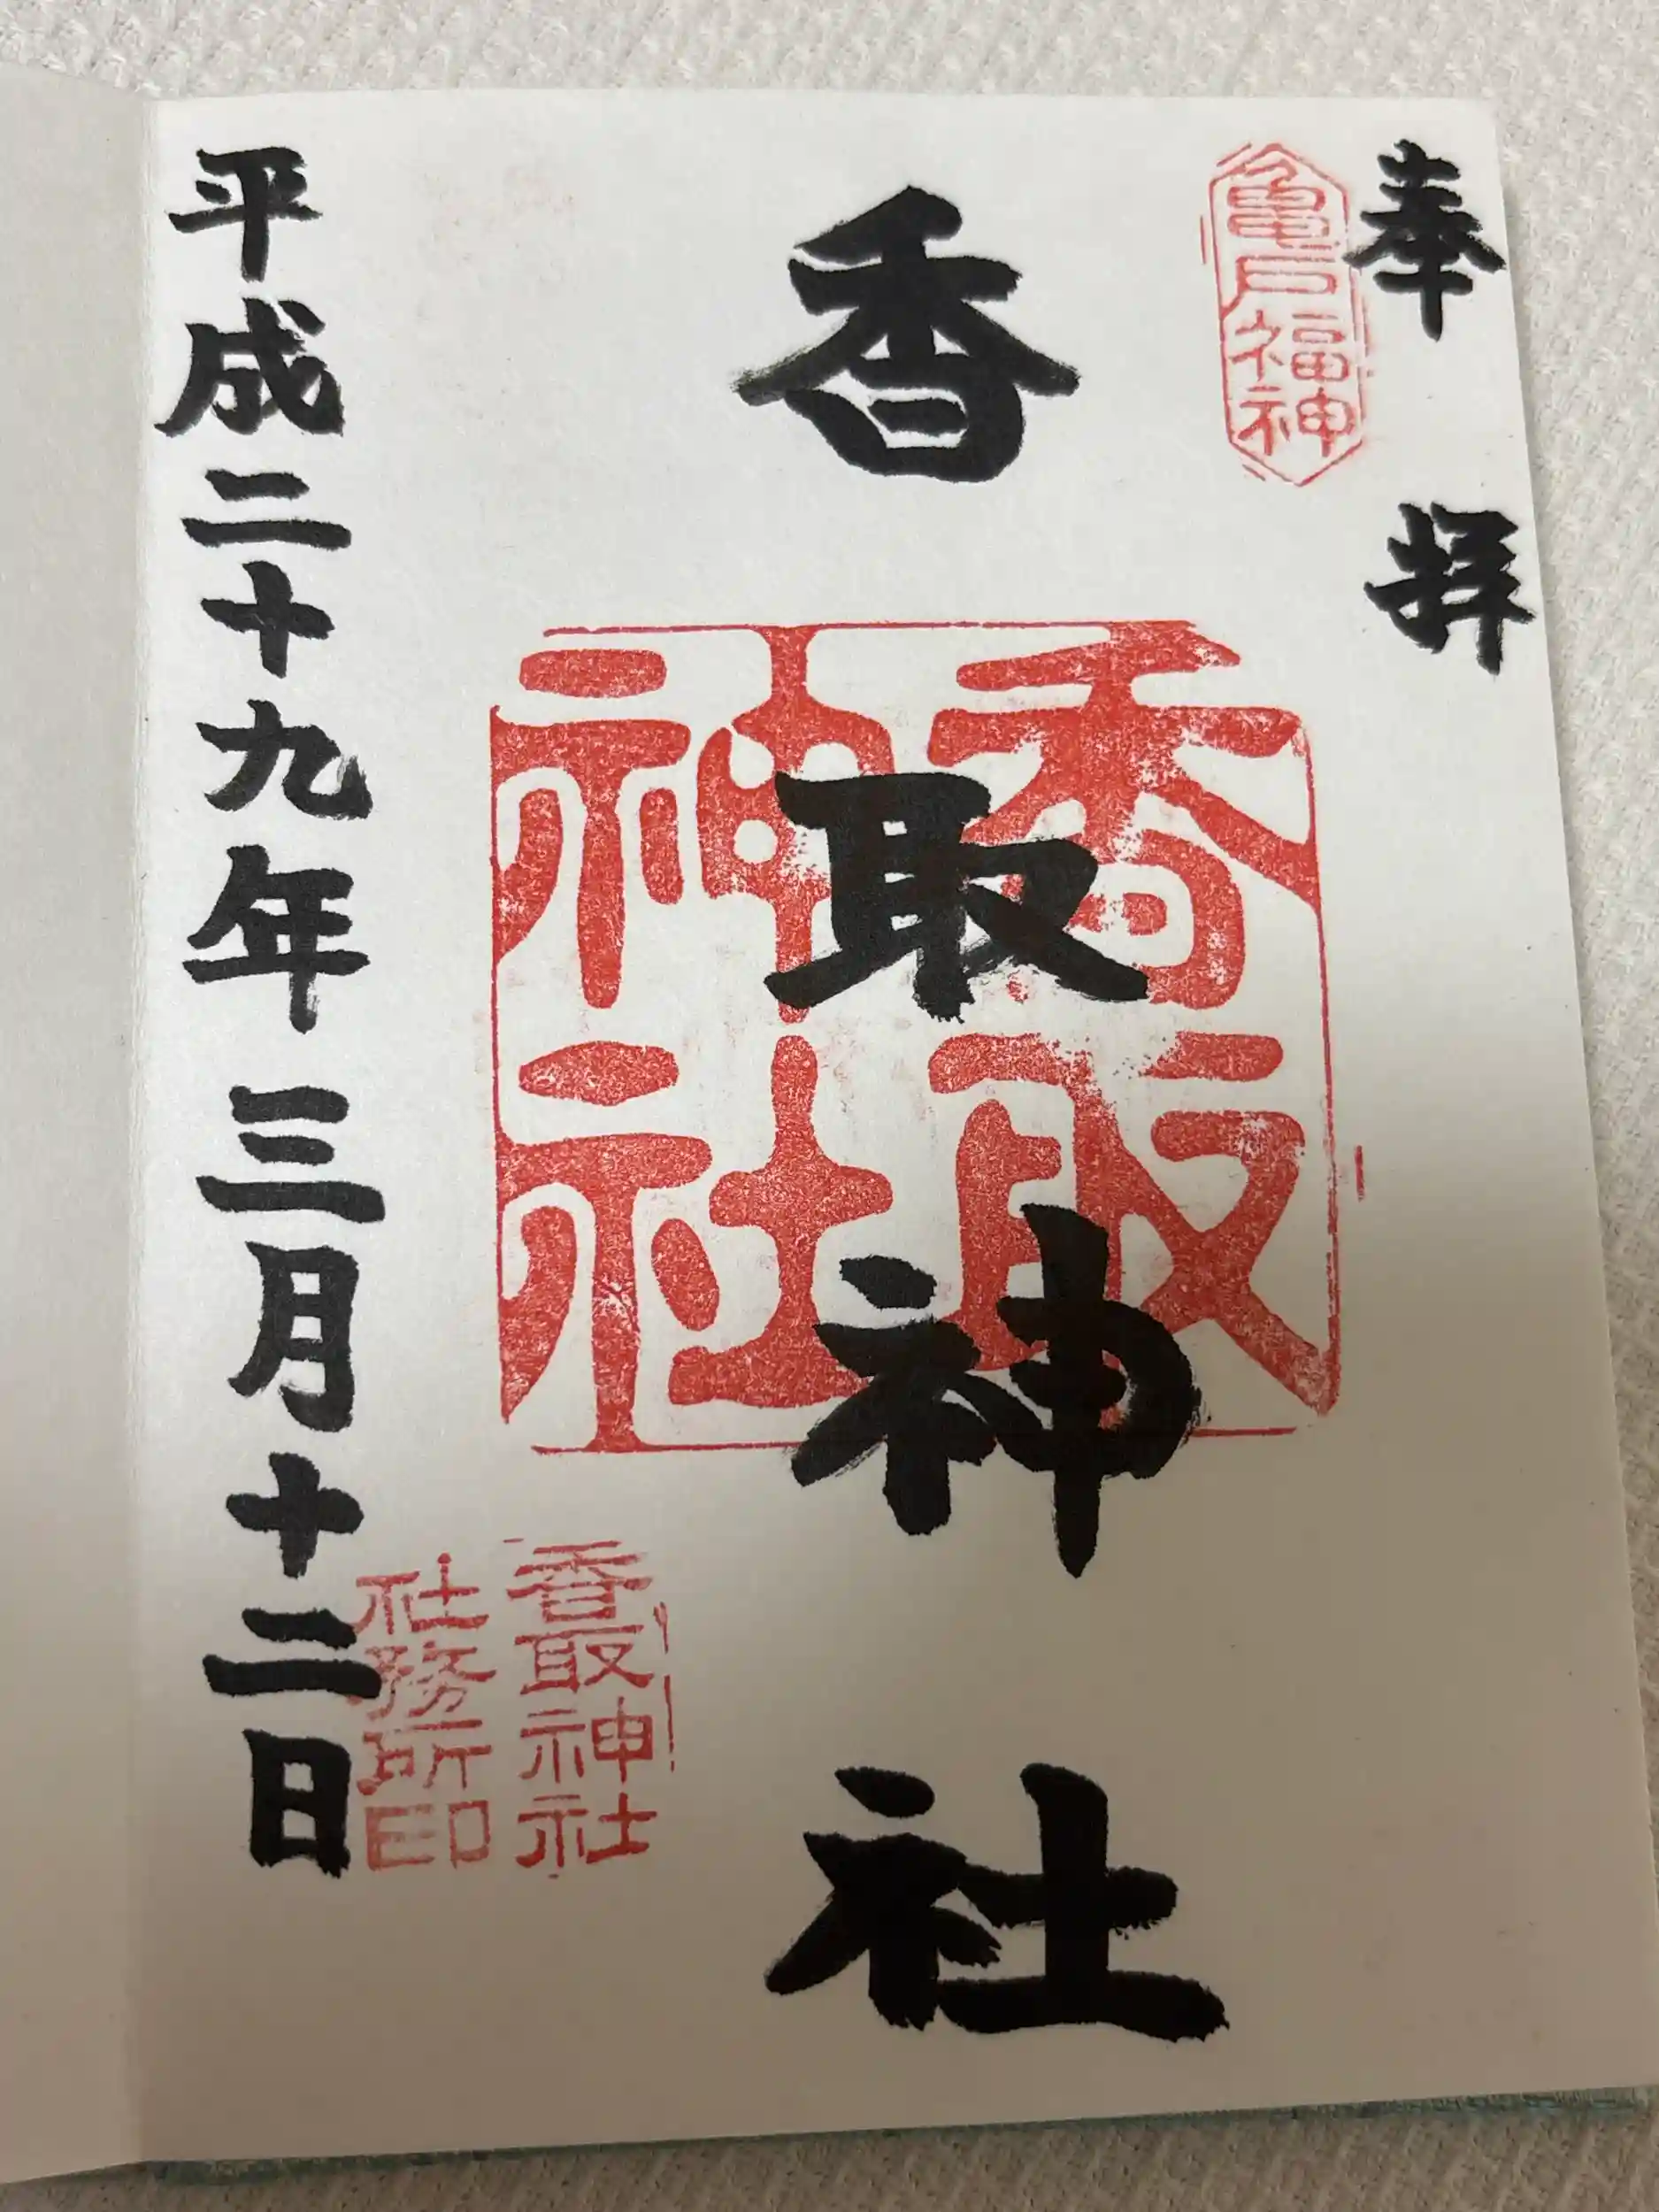 奉拝
亀戸福神
香取神社
香取
神社
香取神社
社務所印
平成二十九年三月十二日